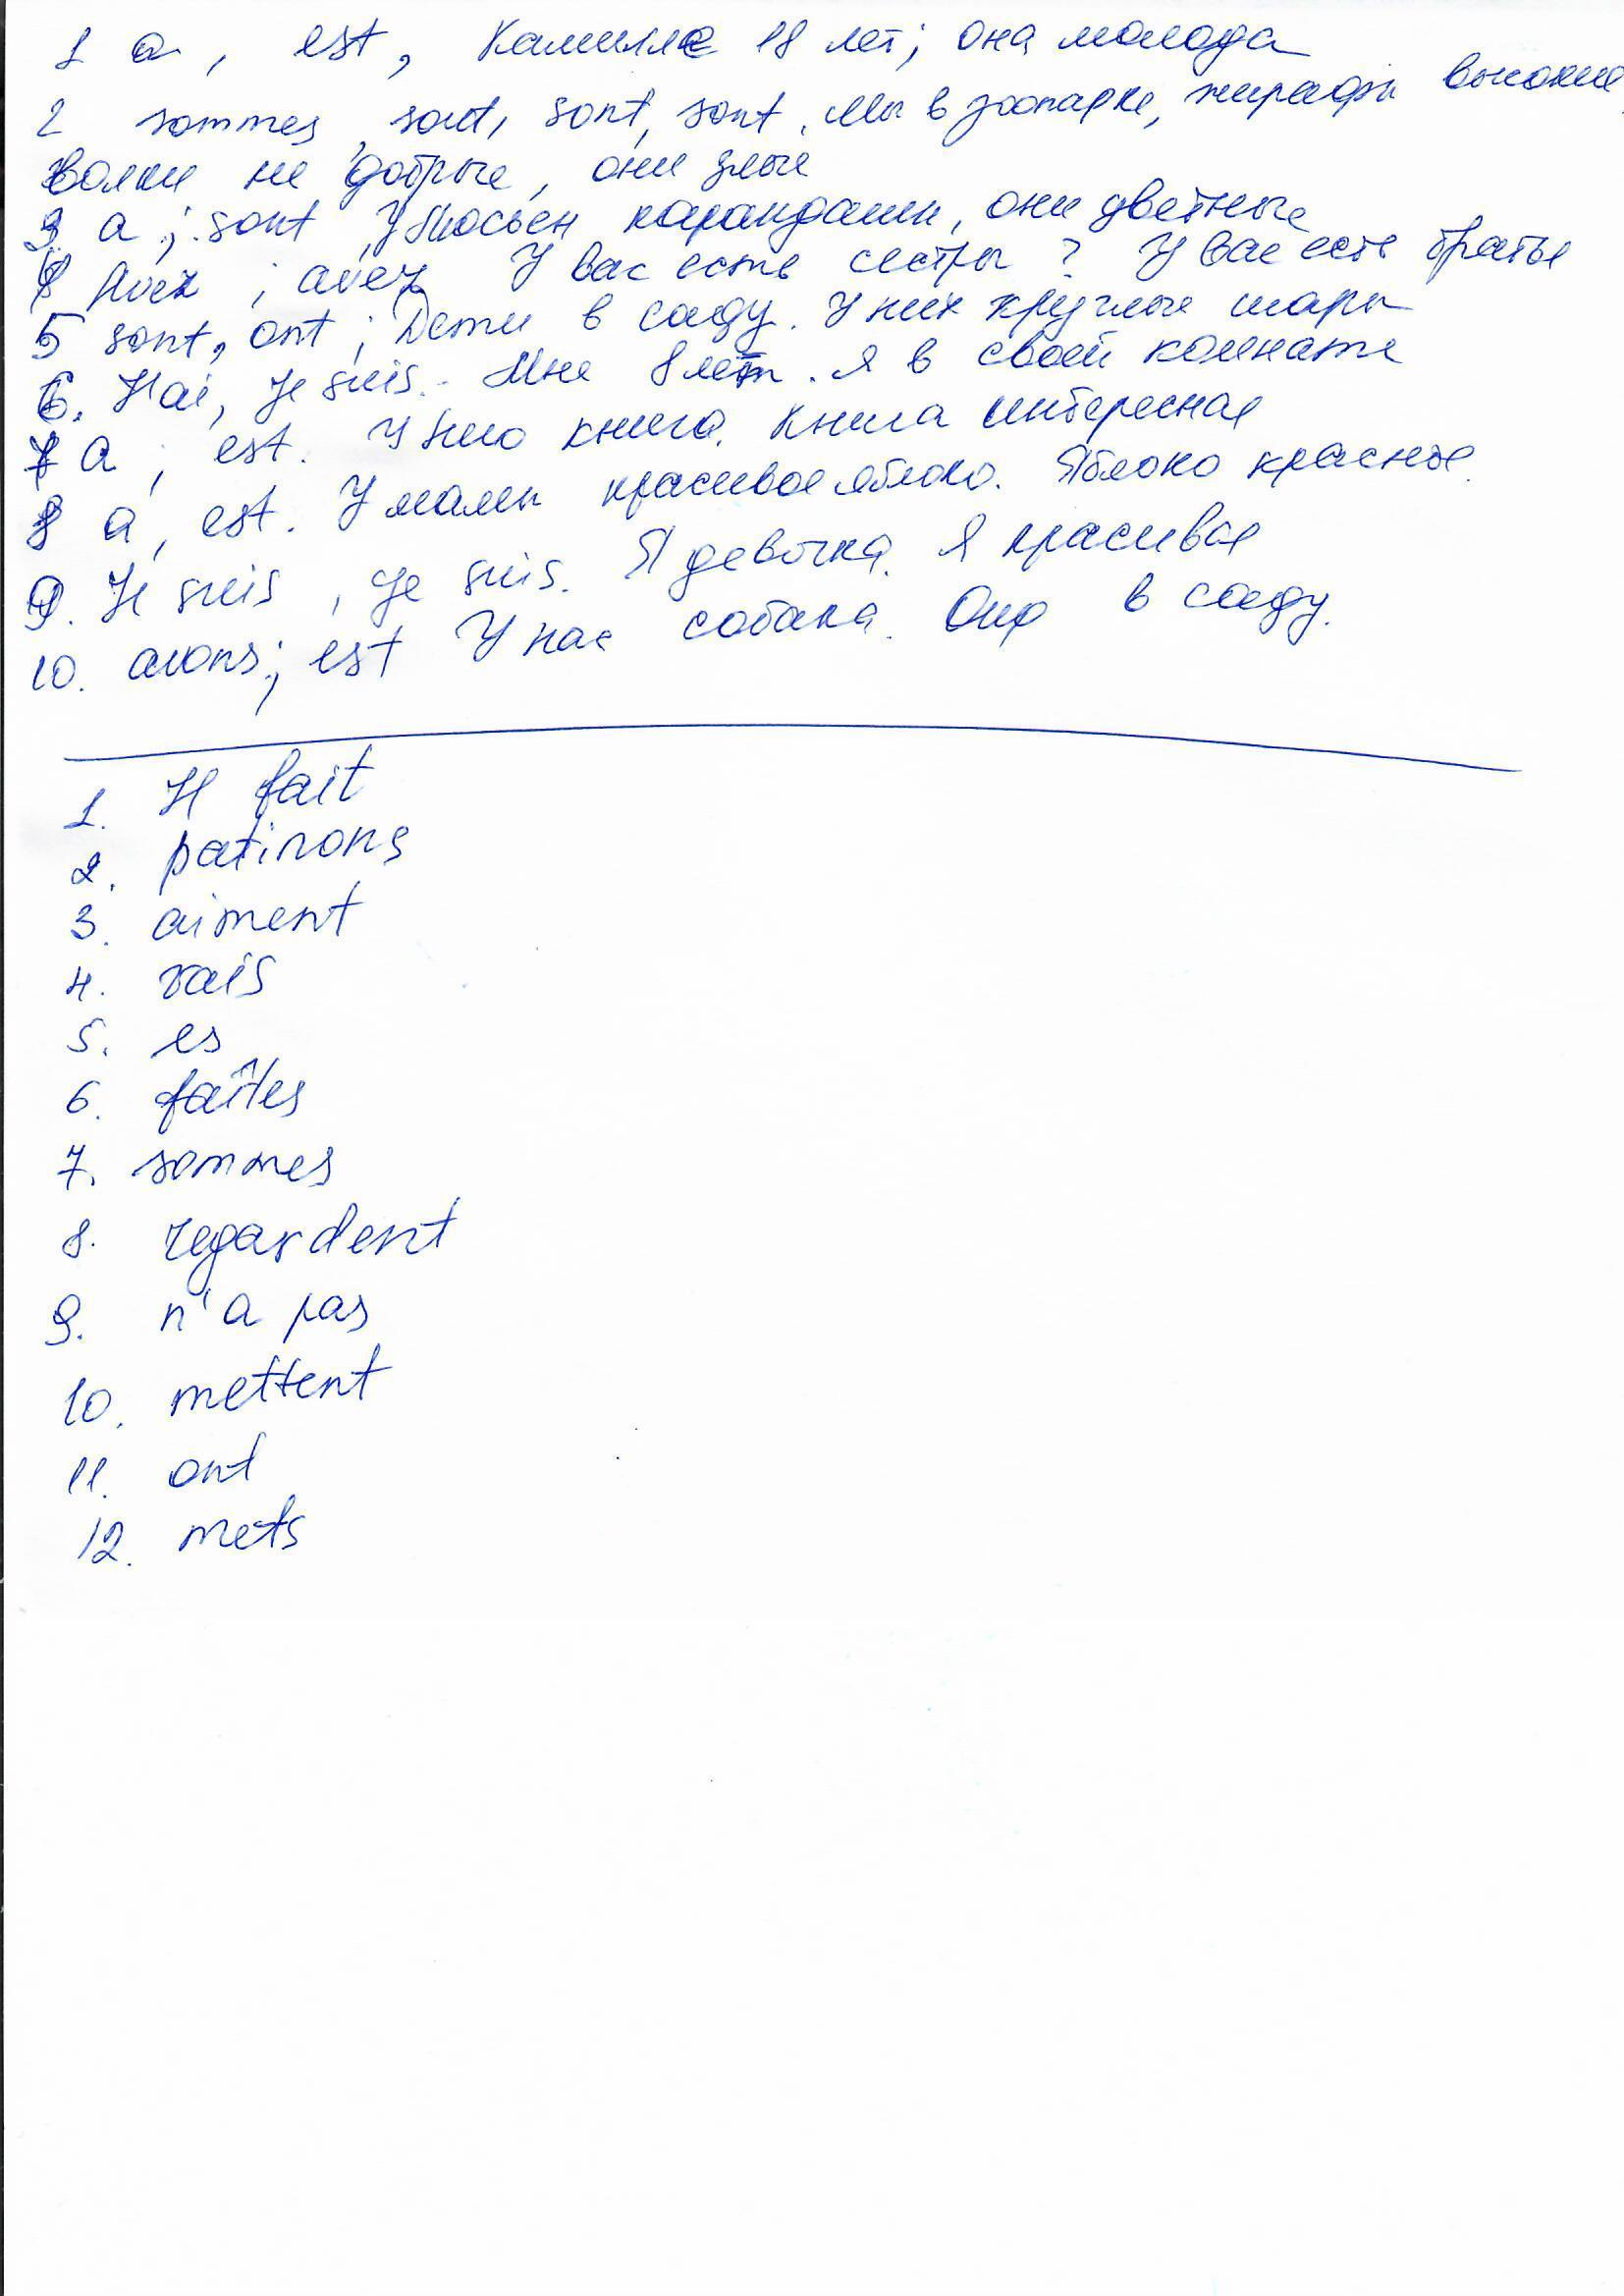 1 a, est, Камилле 18 лет; она молода
2 sommes, sont, sont, sont. Мы в зоопарке, жирафы высокие
Волки не добрые, они злые
3 a; sont У Люсьен карандаши, они цветные
4 Avez; avez У вас есть сестры? У вас есть братья
5 sont, ont; Дети в саду. У них круглые шары
6. J'ai, Je suis. Мне 8 лет. Я в своей комнате
7 a; est. У книга. Книга интересная
8 a, est. У мамы красивое яблоко. Яблоко красное.
9. Je suis, je suis. Я девочка. Я красивая
10. avons; est У нас собака. Она в саду.
1. Il fait
2. patinons
3. aiment
4. vais
5. es
6. faîtes
7. sommes
8. regardent
9. n'a pas
10. mettent
11. ont
12. mets